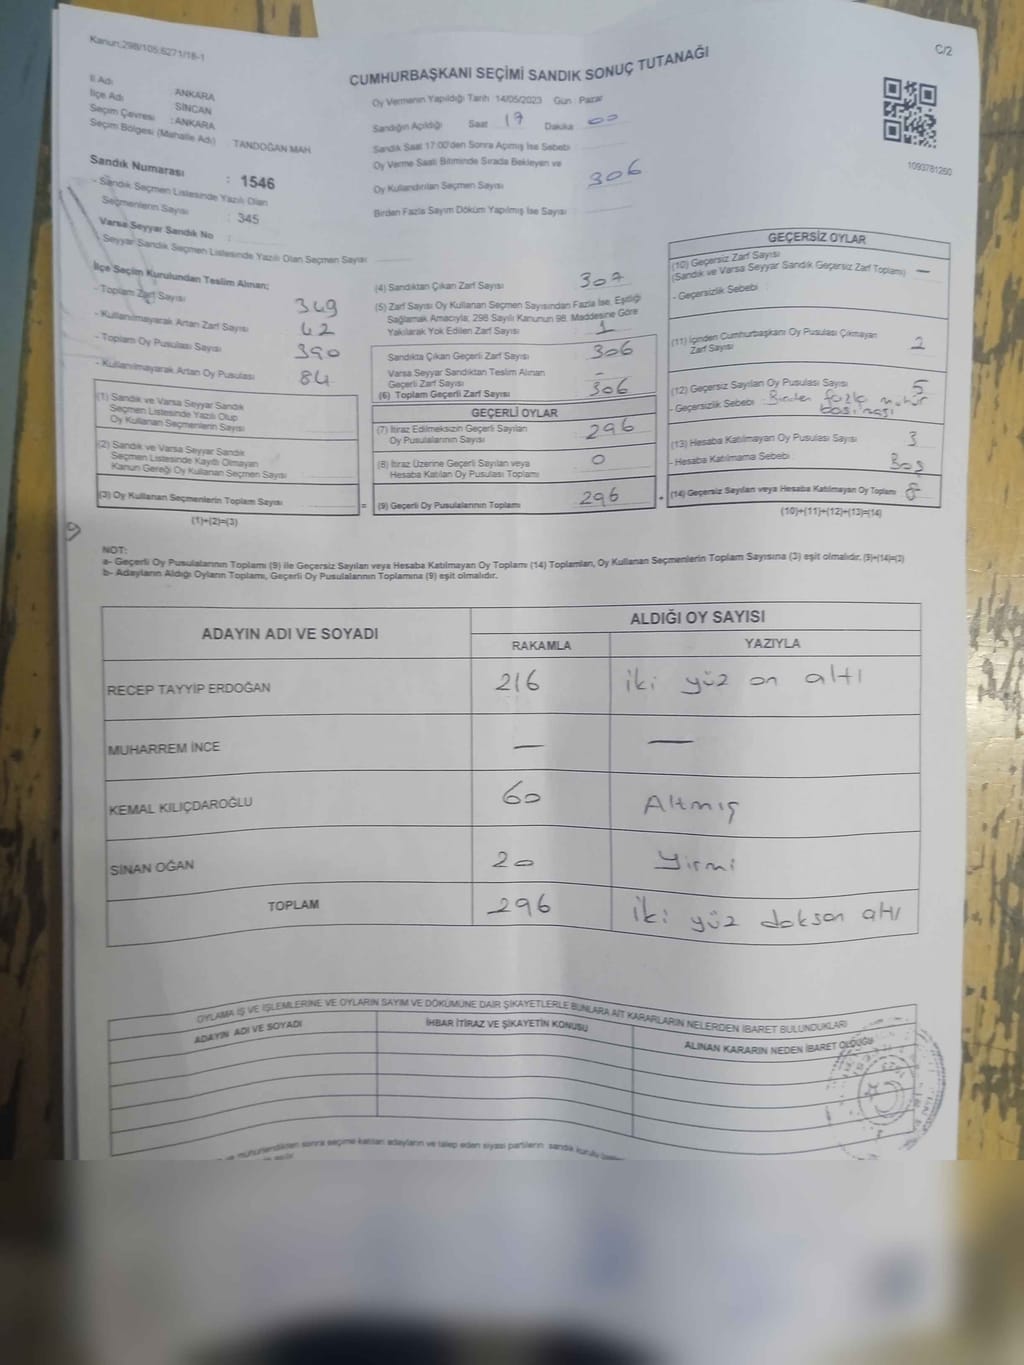 Kanun:298/105;6271/18-1
C/2
CUMHURBAŞKANI SEÇİMİ SANDIK SONUÇ TUTANAĞI
İl Adı : ANKARA
İlçe Adı : SİNCAN
Seçim Çevresi : ANKARA
Seçim Bölgesi (Mahalle Adı) TANDOĞAN MAH
Sandık Numarası : 1546
- Sandık Seçmen Listesinde Yazılı Olan
Seçmenlerin Sayısı : 345
Varsa Seyyar Sandık No :
- Seyyar Sandık Seçmen Listesinde Yazılı Olan Seçmen Sayısı
Oy Vermenin Yapıldığı Tarih : 14/05/2023 Gün : Pazar
Sandığın Açıldığı Saat 17 Dakika 00
Sandık Saat 17:00'den Sonra Açımış İse Sebebi
Oy Verme Saati Bitiminde Sırada Bekleyen ve
Oy Kullandırılan Seçmen Sayısı 306
Birden Fazla Sayım Döküm Yapılmış İse Sayısı
1093781260
İlçe Seçim Kurulundan Teslim Alınan;
- Toplam Zarf Sayısı 349
- Kullanılmayarak Artan Zarf Sayısı 42
- Toplam Oy Pusulası Sayısı 390
- Kullanılmayarak Artan Oy Pusulası 84
(1) Sandık ve Varsa Seyyar Sandık
Seçmen Listesinde Yazılı Olup
Oy Kullanan Seçmenlerin Sayısı
(2) Sandık ve Varsa Seyyar Sandık
Seçmen Listesinde Kayıtlı Olmayan
Kanun Gereği Oy Kullanan Seçmen Sayısı
(3) Oy Kullanan Seçmenlerin Toplam Sayısı
(1)+(2)=(3)
=
(4) Sandıktan Çıkan Zarf Sayısı 307
(5) Zarf Sayısı Oy Kullanan Seçmen Sayısından Fazla İse, Eşitliği
Sağlamak Amacıyla; 298 Sayılı Kanunun 98. Maddesine Göre
Yakılarak Yok Edilen Zarf Sayısı 1
Sandıkta Çıkan Geçerli Zarf Sayısı 306
Varsa Seyyar Sandıktan Teslim Alınan
Geçerli Zarf Sayısı –
(6) Toplam Geçerli Zarf Sayısı 306
GEÇERLİ OYLAR
(7) İtiraz Edilmeksizin Geçerli Sayılan
Oy Pusulalarının Sayısı 296
(8) İtiraz Üzerine Geçerli Sayılan veya
Hesaba Katılan Oy Pusulası Toplamı 0
(9) Geçerli Oy Pusulalarının Toplamı 296
+
GEÇERSİZ OYLAR
(10) Geçersiz Zarf Sayısı
(Sandık ve Varsa Seyyar Sandık Geçersiz Zarf Toplamı) —
- Geçersizlik Sebebi :
(11) İçinden Cumhurbaşkanı Oy Pusulası Çıkmayan
Zarf Sayısı 2
(12) Geçersiz Sayılan Oy Pusulası Sayısı 5
- Geçersizlik Sebebi : Birden fazla mühür
basılması
(13) Hesaba Katılmayan Oy Pusulası Sayısı 3
- Hesaba Katılmama Sebebi :
(14) Geçersiz Sayılan veya Hesaba Katılmayan Oy Toplamı 8
(10)+(11)+(12)+(13)=(14)
NOT:
a- Geçerli Oy Pusulalarının Toplamı (9) ile Geçersiz Sayılan veya Hesaba Katılmayan Oy Toplamı (14) Toplamları, Oy Kullanan Seçmenlerin Toplam Sayısına (3) eşit olmalıdır. (9)+(14)=(3)
b- Adayların Aldığı Oyların Toplamı, Geçerli Oy Pusulalarının Toplamına (9) eşit olmalıdır.
ADAYIN ADI VE SOYADI
ALDIĞI OY SAYISI
RAKAMLA YAZIYLA
RECEP TAYYİP ERDOĞAN 216 iki yüz on altı
MUHARREM İNCE — —
KEMAL KILIÇDAROĞLU 60 Altmış
SİNAN OĞAN 20 Yirmi
TOPLAM 296 iki yüz doksan altı
OYLAMA İŞ VE İŞLEMLERİNE VE OYLARIN SAYIM VE DÖKÜMÜNE DAİR ŞİKAYETLERLE BUNLARA AİT KARARLARIN NELERDEN İBARET BULUNDUKLARI
ADAYIN ADI VE SOYADI İHBAR İTİRAZ VE ŞİKAYETİN KONUSU ALINAN KARARIN NEDEN İBARET OLDUĞU
mühürlendikten sonra seçime katılan adayların ve talep eden siyasi partilerin sandık kurulu